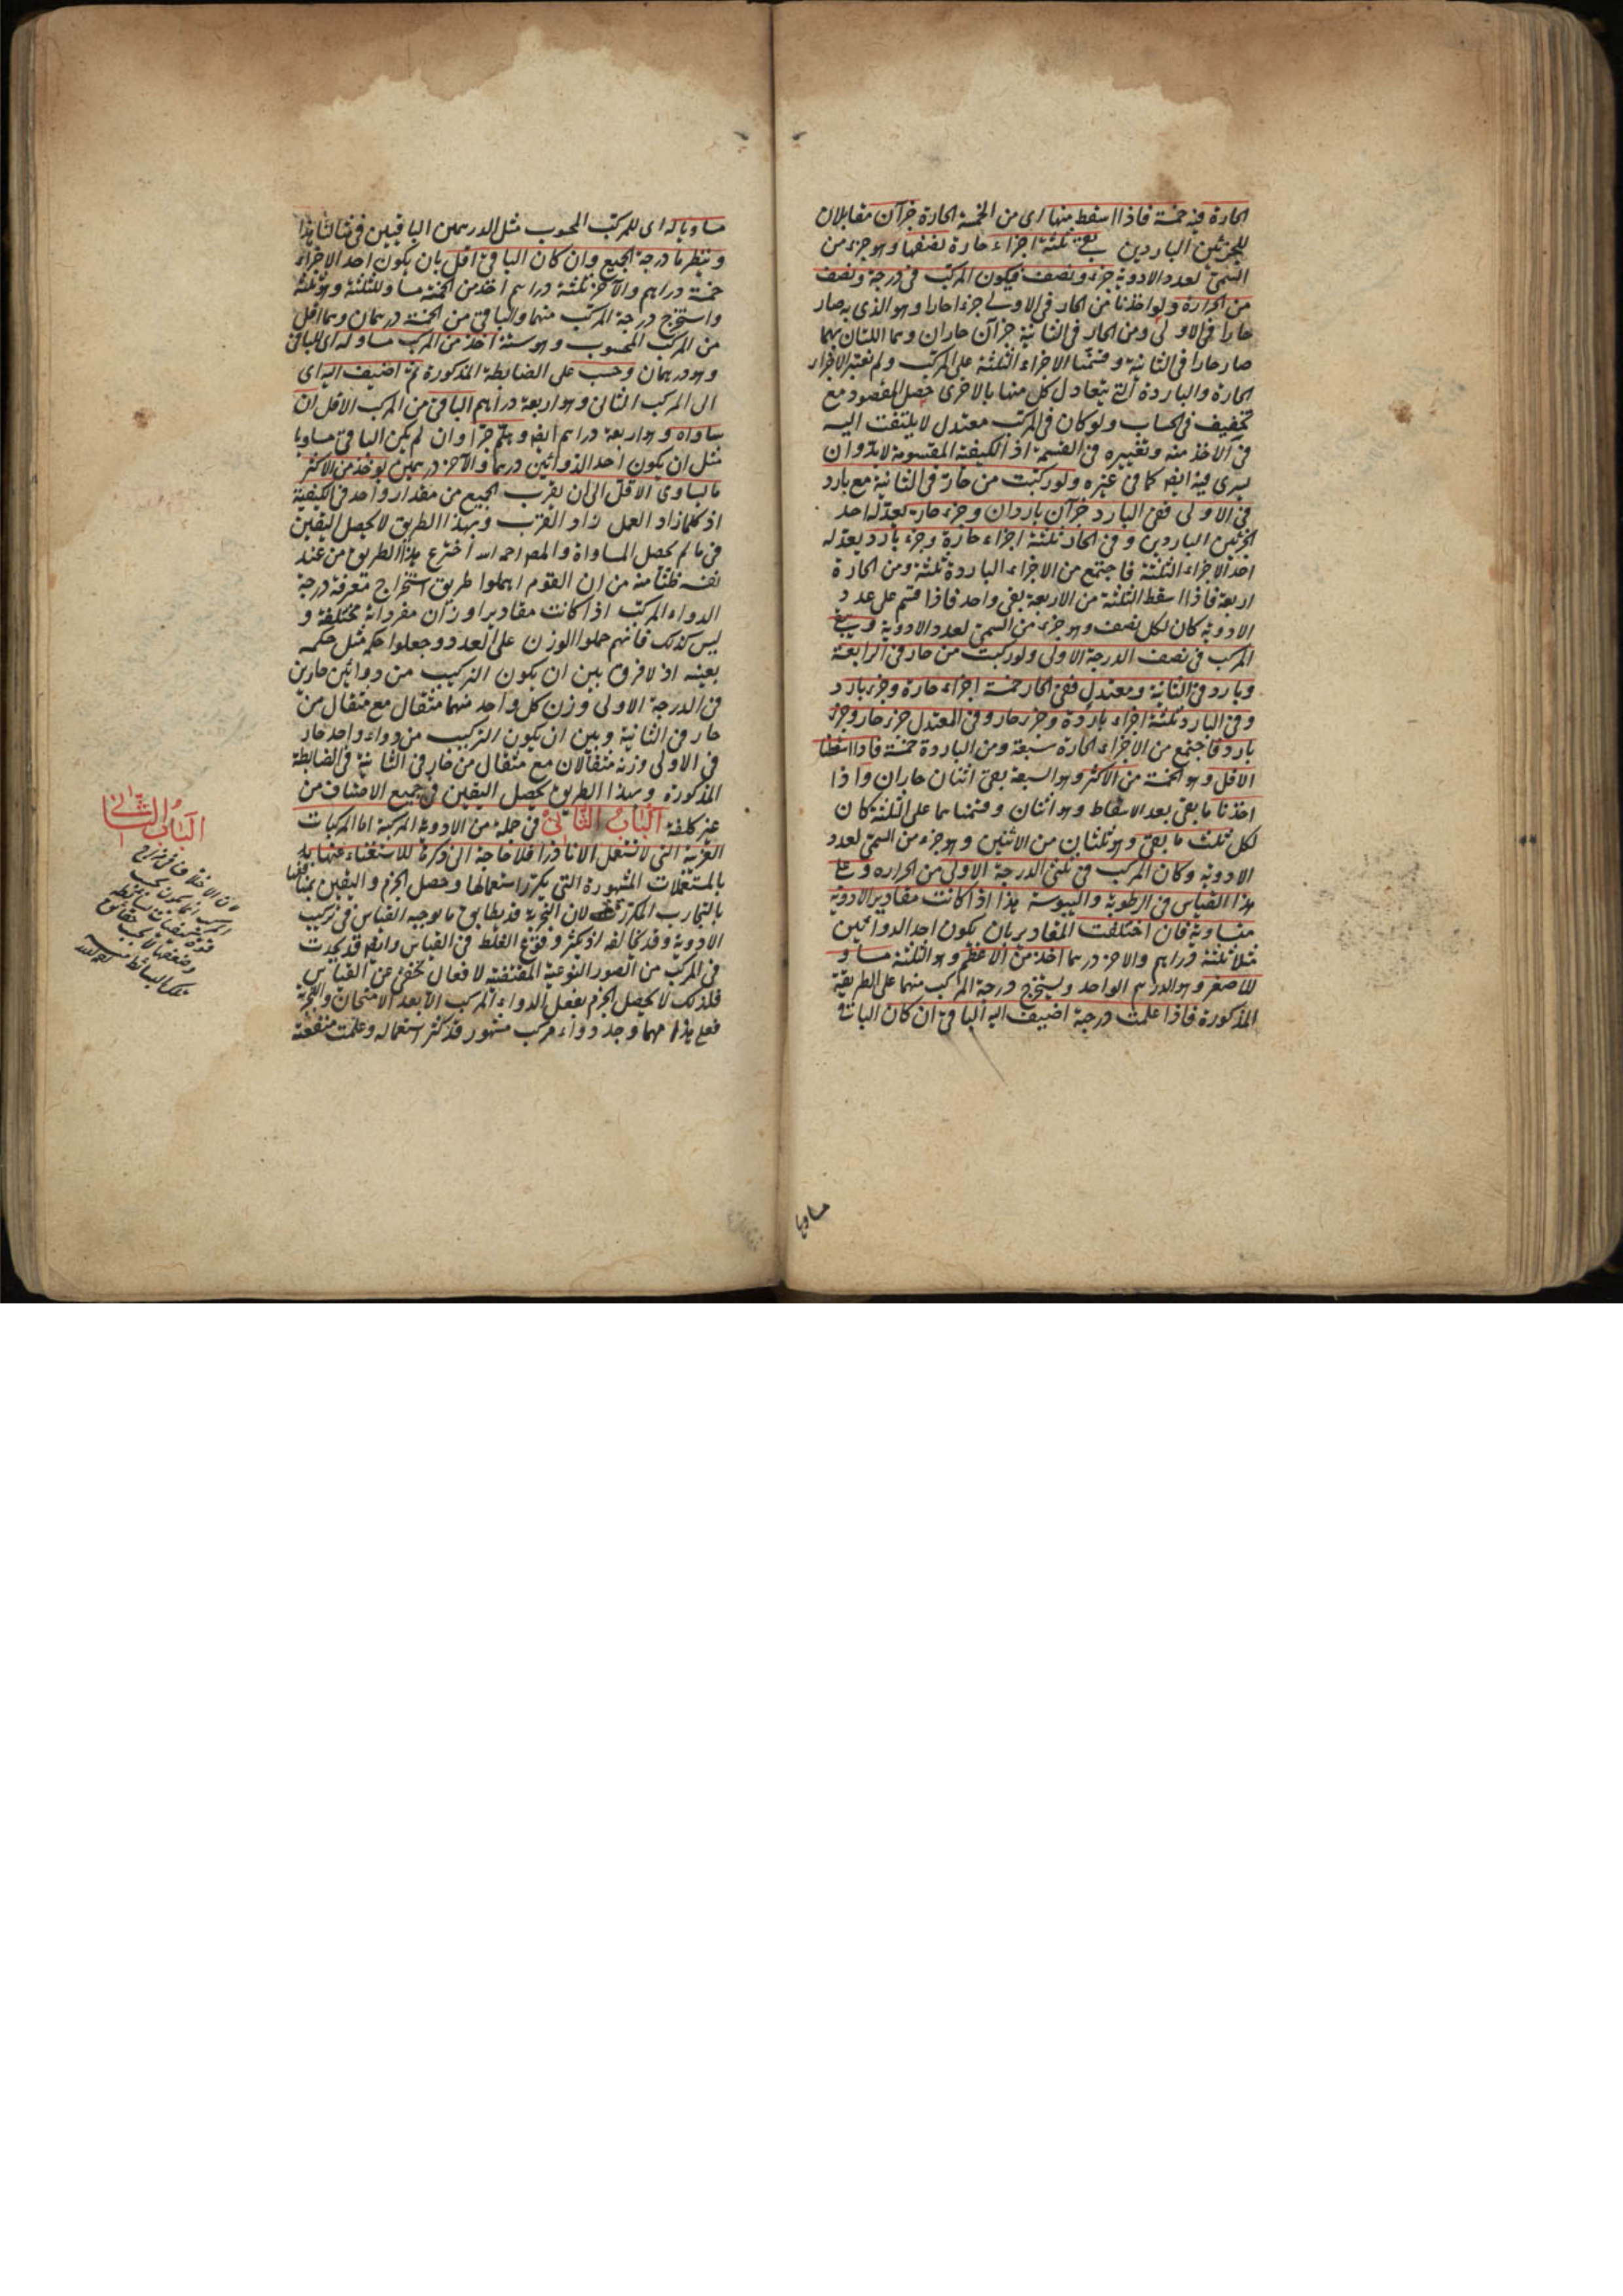 الحارة فيه خمسة فاذا اسقط منها اى من الخمسة الحارة جزآن مقابلان
للجزئين الباردين بقى ثلثة اجزاء حارة نصفها وهو جزء من
السمىّ لعدد الادوية جزء ونصف فيكون المركب فى درجة ونصف
من الحرارة ولو اخذنا من الحار فى الاولى جزءا حارا وهو الذى به صار
حارا فى الاولى ومن الحار فى الثانية جزآن حاران وهما اللتان بهما
صار حارا فى الثانية وقسمنا الاجزاء الثلثة على المركب ولم نعتبر الاجزاء
الحارة والباردة التى يتعادل كل منها بالاخرى حصل المقصود مع
تخفيف فى الحساب ولو كان فى المركب معتدل لا يلتفت اليه
فى الاخذ منه وتغييره فى القسمة اذ الكيفية المقسومة لابد وان
يسرى فيه ايض كما فى غيره ولو ركبت من حار فى الثانية مع بارد
فى الاولى ففى البارد جزآن باردان وجزء حار يعدله احد
الجزئين الباردين وفى الحار ثلثة اجزاء حارة وجزء بارد يعدله
احد الاجزاء الثلثة فاجتمع من الاجزاء الباردة ثلثة ومن الحارة
اربعة فاذا اسقط الثلثة من الاربعة بقى واحد فاذا قسم على عدد
الادوية كان لكل نصف وهو جزء من السمىّ لعدد الادوية
المركب فى نصف الدرجة الاولى ولو ركبت من حار فى الرابعة
وبارد فى الثانية ومعتدل ففى الحار خمسة اجزاء حارة وجزء بارد
وفى البارد ثلثة اجزاء باردة وجزء حار وفى المعتدل جزء حار وجزء
بارد فاجتمع من الاجزاء الحارة سبعة ومن الباردة خمسة فاذا اسقطنا
الاقل وهو الخمسة من الاكثر وهو السبعة بقى اثنان حاران واذا
اخذنا ما بقى بعد الاسقاط وهو اثنان وقسمناهما على الثلثة كان
لكل ثلث ما بقى وهو ثلثان من الاثنين وهو جزء من السمىّ لعدد
الادوية وكان المركب فى ثلثى الدرجة الاولى من الحراره وعلى
هذا القياس فى الرطوبة واليبوسة هذا اذا كانت مقادير الادوية
متساوية فان اختلفت المقادير بان يكون احد الدوائين
مثلا ثلثة دراهم والاخر درهما اخذ من الاعظم وهو الثلثة مساو
للاصغر وهو الدرهم الواحد ويستخرج درجة المركب منهما على الطريقة
المذكورة فاذا علمت درجة اضيف اليه الباقى ان كان الباقى
مساويا
مساويا له اى للمركب المحسوب مثل الدرهمين الباقيين فى مثالنا هذا
وينظر ما درجة الجميع وان كان الباقى اقل بان يكون احد الاجزاء
خمسة دراهم والآخر ثلثة دراهم اخذ من الخمسة مساو للثلثة وهو ثلثة
واستخرج درجة المركب منهما والباقى من الخمسة درهمان وهما اقل
من المركب المحسوب وهو ستة اخذ من المركب مساو له اى للباقى
وهو درهمان وحسب على الضابطة المذكورة ثم اضيف اليه اى
الى المركب الثانى وهو اربعة دراهم الباقى من المركب الاقل ان
ساواه وهو اربعة دراهم ايض وهلم جرّا وان لم يكن الباقى مساويا
مثل ان يكون احد الدوائين درهما والآخر درهمين يوخذ من الاكثر
ما يساوى الاقل الى ان يقرب الجميع من مقدار واحد فى الكيفية
اذ كلما زاد العمل زاد القرب وبهذا الطريق لا يحصل اليقين
فى ما لم يحصل المساواة والمص رحمه الله اخترع هذا الطريق من عند
نفسه ظنا منه من ان القوم اهملوا طريق استخراج معرفة درجة
الدواء المركب اذا كانت مقادير اوزان مفرداته مختلفة و
ليس كذلك فانهم حملوا الوزن على العدد وجعلوا حكمه مثل حكمه
بعينه اذ لا فرق بين ان يكون التركيب من دوائين حارين
فى الدرجة الاولى وزن كل واحد منهما مثقال مع مثقال من
حار فى الثانية وبين ان يكون التركيب من دواء واحد حار
فى الاولى وزنه مثقالان مع مثقال من حار فى الثانية فى الضابطة
المذكورة وبهذا الطريق يحصل اليقين فى جميع الاصناف من
غير كلفة الباب الثانى فى جملة من الادوية المركبة اما المركبات
الغريبة التى لا تستعمل الا نادرا فلا حاجة الى ذكرها للاستغناء عنها
بالمستعملات المشهورة التى يكرر استعمالها وحصل الجزم واليقين بمنافعها
بالتجارب المكررة لان التجربة قد يطابق ما يوجبه القياس فى تركيب
الادوية وقد يخالفه اذ يكثر وقوع الغلط فى القياس وايض قد يحدث
فى المركب من الصور النوعية المقتضية لافعال يخفى عن القياس
فلذلك لا يحصل الجزم بفعل الدواء المركب الا بعد الامتحان والتجربة
فعلى هذا مهما وجد دواء مركب مشهور قد كثر استعماله وعلمت منفعته
الباب الثانى